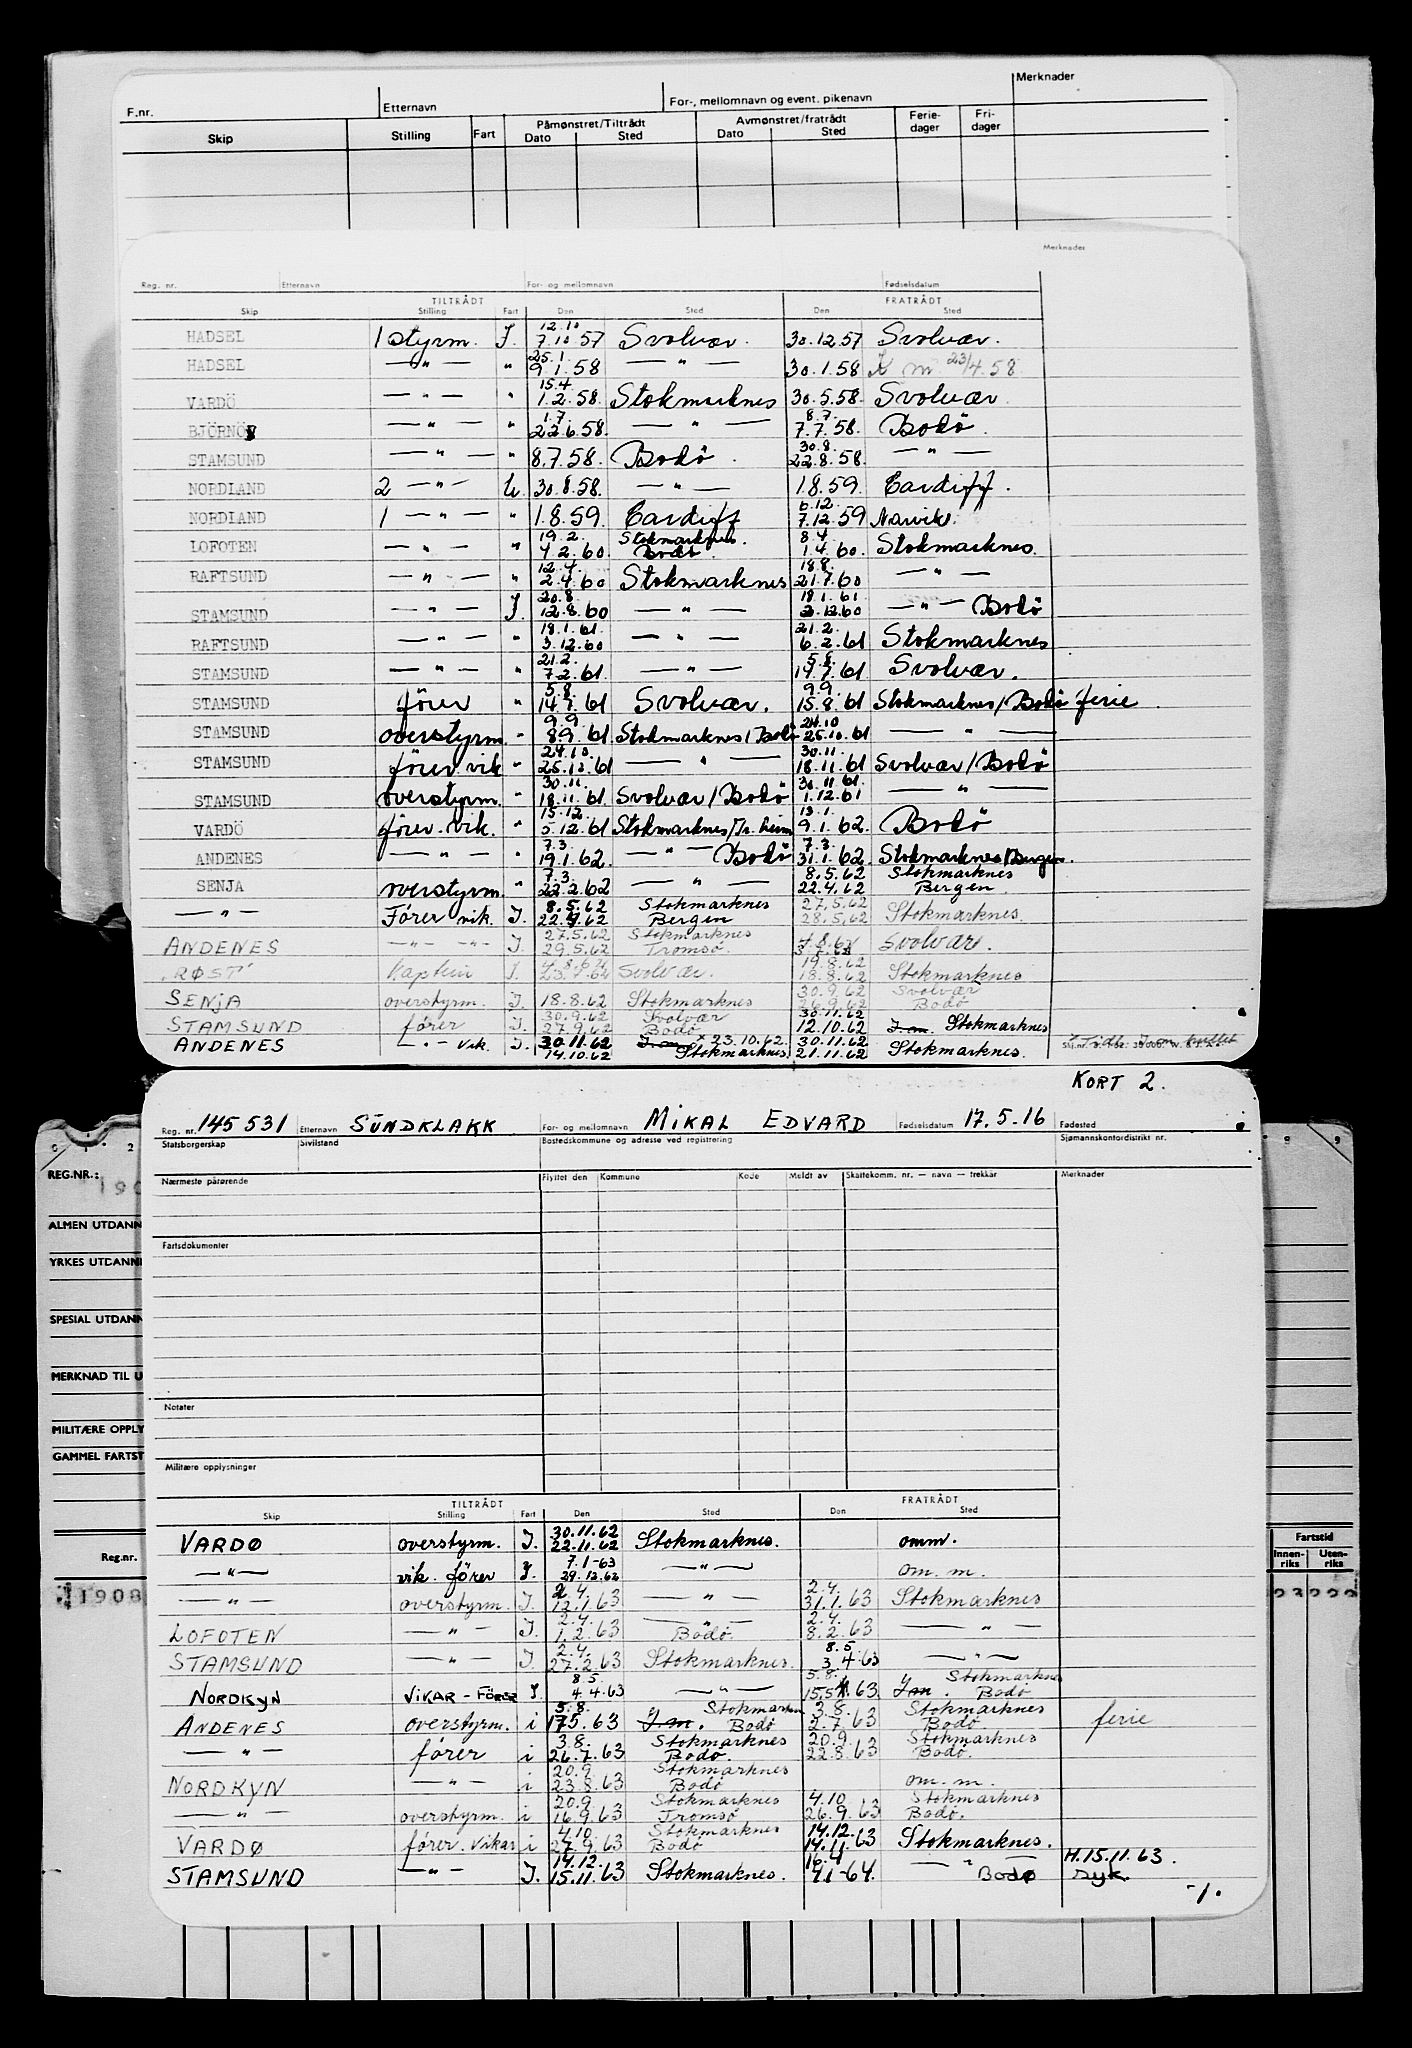 Merknader
F.nr. Etternavn For-, mellomnavn og event. pikenavn
Skip Stilling Fart Påmønstret/Tiltrådt Dato Sted Avmønstret/fratrådt Dato Sted Ferie-dager Fri-dager
Merknader
Reg. nr. Etternavn For- og mellomnavn Fødselsdatum
TILTRÅDT FRATRÅDT
Skip Stilling Fart Den Sted Den Sted
12.10
HADSEL 1 styrm. I. 7.10.57 Svolvær. 30.12.57 Svolvær.
25.1.
HADSEL — " — " 9.1.58 — " — 30.1.58 m 23/4.58
15.4
VARDÖ — " — " 1.2.58 Stokmarknes 30.5.58 Svolvær
1.7. 8.7.
BJÖRNÖY — " — " 22.6.58. — " — 7.7.58. Bodö.
30.8.
STAMSUND — " — " 8.7.58. Bodö. 22.8.58. — " —
NORDLAND 2 — " — U. 30.8.58. — " — 1.8.59. Cardiff.
6.12.
NORDLAND 1 — " — " 1.8.59. Cardiff 7.12.59 Narvik.
19.2. Stokmarknes. 8.4
LOFOTEN — " — " 4.2.60 Bodö. 1.4.60. Stokmarknes.
12.4. 18.8.
RAFTSUND — " — " 2.4.60 Stokmarknes 21.7.60 — " —
20.8. 18.1.61
STAMSUND — " — I. 12.8.60 — " — 2.12.60 — " — Bodö
18.1.61. 21.2.
RAFTSUND — " — " 3.12.60 — " — 6.2.61 Stokmarknes
21.2. 5.8.
STAMSUND — " — " 7.2.61. — " — 14.7.61 Svolvær.
5.8. 9.9.
STAMSUND förer " 14.7.61 Svolvær. 15.8.61 Stokmarknes/Bodö ferie
9.9. 24.10
STAMSUND overstyrm. " 8.9.61 Stokmarknes/Bodö 25.10.61 — " —
24.10. 30.11.
STAMSUND förer vik " 25.10.61 — " — 18.11.61 Svolvær/Bodö
30.11. 30.11.61.
STAMSUND overstyrm. " 18.11.61. Svolvær/Bodö 1.12.61 — " —
15.12. 13.1.
VARDÖ förer. vik. " 5.12.61 Stokmarknes/Tr.heim 9.1.62. Bodö
7.3. 7.3.
ANDENES — " — " 19.1.62. — " — Bodö 31.1.62. Stokmarknes/Bergen.
7.3. 8.5.62 Stokmarknes
SENJA overstyrm. " 22.2.62 — " — 22.4.62 Bergen.
8.5.62 Stokmarknes 27.5.62
— " — Förer vik. I. 22.4.62 Bergen 28.5.62 Stokmarknes
27.5.62 Stokmarknes
ANDENES — " — " — I. 29.5.62 Tromsø. Svolvær.
19.8.62
"RØST" Kaptein I. 23.7.62 Svolvær. 18.8.62 Stokmarknes
30.9.62 Svolvær
SENJA overstyrm. I. 18.8.62 Stokmarknes 26.9.62 Bodø
30.9.62 Svolvær 30.11.62
STAMSUND fører I. 27.9.62 Bodø 12.10.62 I om. Stokmarknes
30.11.62 I om. x 23.10.62. 30.11.62
ANDENES — " — vik. I. 14.10.62 Stokmarknes 21.11.62 Stokmarknes.
KORT 2.
Reg. nr. 145531 Etternavn SUNDKLAKK For- og mellomnavn MIKAL EDVARD Fødselsdatum 17.5.16 Fødested
Statsborgerskap Sivilstand Bostedskommune og adresse ved registrering Sjømannskontordistrikt nr.
Nærmeste pårørende Flyttet den Kommune Kode Meldt av Skattekomm. nr. — navn — trekkår Merknader
Fartsdokumenter
Notater
Militære opplysninger
TILTRÅDT FRATRÅDT
Skip Stilling Fart Den Sted Den Sted
30.11.62
VARDØ overstyrm. I. 22.11.62 Stokmarknes. omm.
7.1-63
— " — vik. förer I. 29.12.62 — " — om. m.
2.4. 2.4.
— " — overstyrm. I. 12.1.63 — " — 31.1.63 Stokmarknes
2.4. 2.4.
LOFOTEN — " — I. 1.2.63 Bodø. 8.2.63 — " —
2.4. 8.5.
STAMSUND — " — I 27.2.63 Stokmarknes. 3.4.63 — " —
8.5. 5.8. Stokmarknes
NORDKYN VIKAR-FÖRER I. 4.4.63 — " — I m. Bodø
5.8. Stokmarknes 3.8. Stokmarknes
ANDENES overstyrm. i 17.5.63 I m. Bodø 2.7.63 Bodø. ferie
3.8. Stokmarknes 20.9. Stokmarknes
— " — fører i 26.7.63 Bodø. 22.8.63 Bodø.
20.9. Stokmarknes
NORDKYN — " — i 23.8.63 Bodø om. m.
20.9. Stokmarknes 4.10 Stokmarknes
— " — overstyrm. i 16.9.63 Tromsø 26.9.63 Bodø.
4.10. Stokmarknes 14.12.
VARDØ fører. vikar i 27.9.63 Bodø 14.11.63 Stokmarknes.
14.12. 16.4 H.15.11.63.
STAMSUND — " — I. 15.11.63 Stokmarknes. 9.1-64. — " — Bodø syk.
-/.
0 1 2 8 9
REG.NR.:
ALMEN UTDANN
YRKES UTDANN
SPESIAL UTDANN
MERKNAD TIL U
MILITÆRE OPPLY
GAMMEL FARTST
Reg.nr. Fartstid
Innen-riks Uten-riks
1908